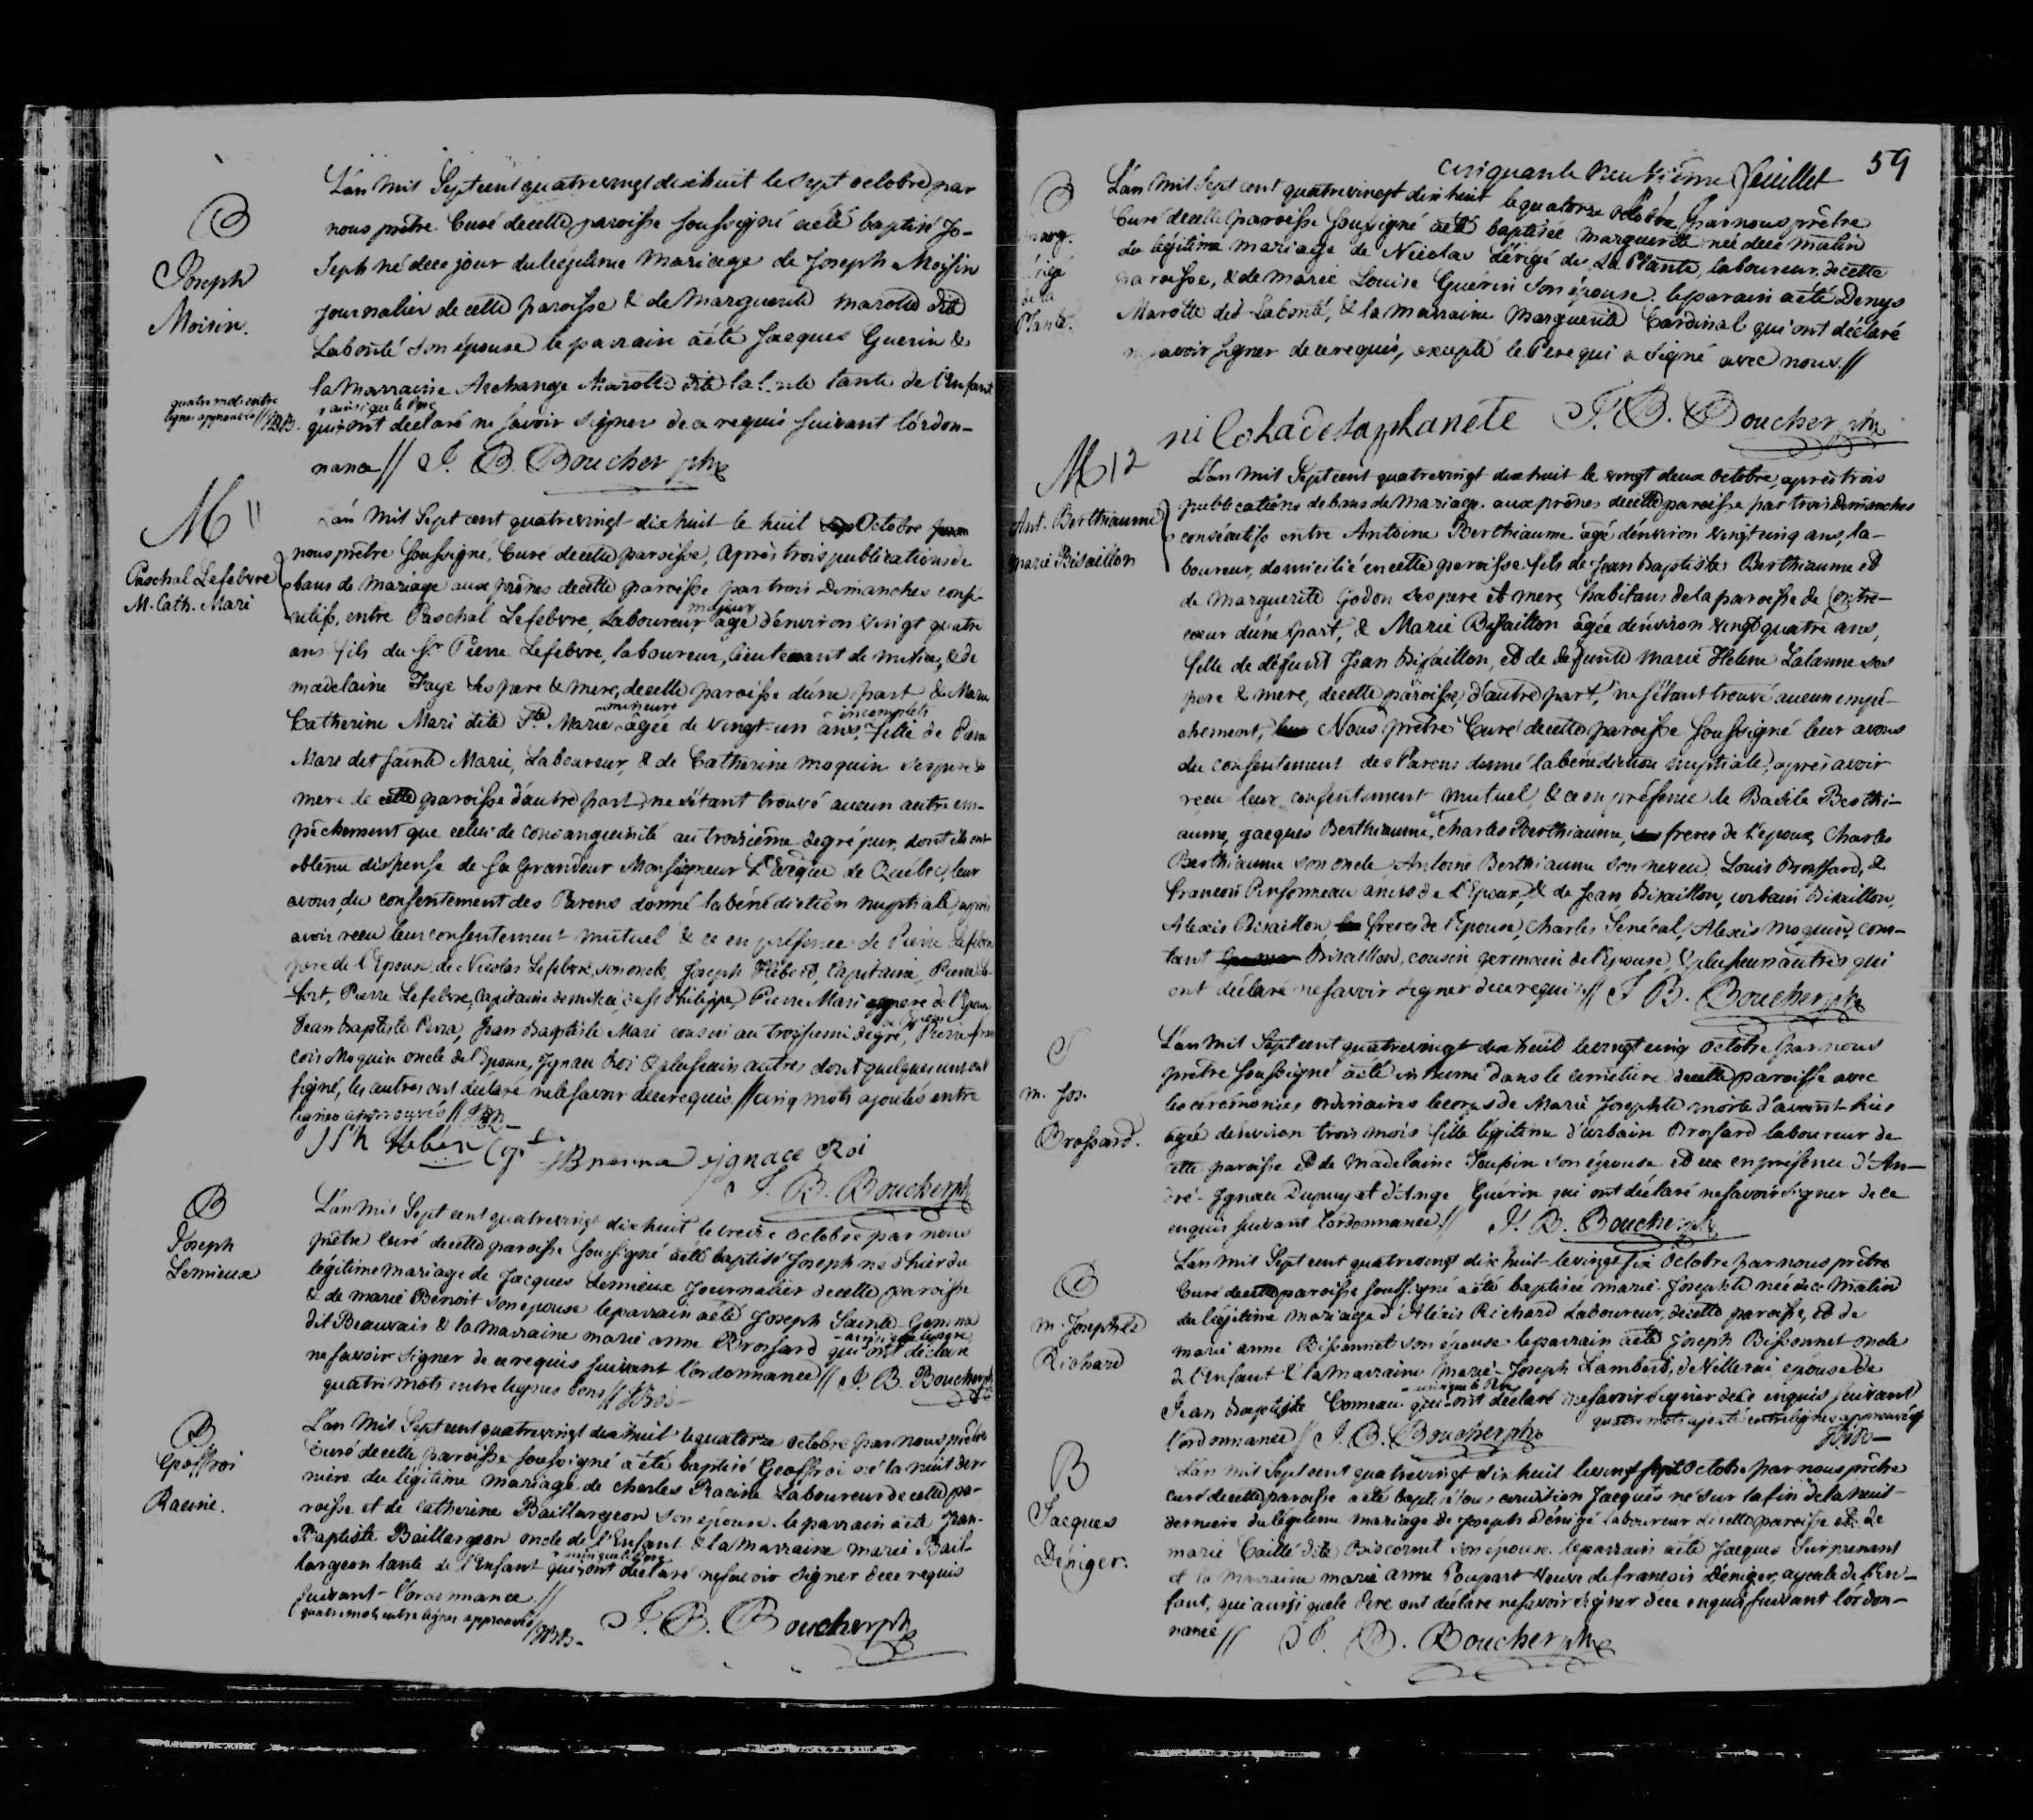 B
Joseph
Moisin.
L'an mil Sept cent quatrevingt dixhuit le sept octobre par
nous prêtre Curé decette paroisse soussigné aété baptisé Jo-
seph né dece jour du légitime mariage de Joseph Moisin
journalier de cette paroisse & de Marguerite marotte dite
Labonté son épouse le parrain aété Jacques Guerin &
la marraine Archange Marotte dite tante de l'Enfant
, ainsi que le Pere
qui ont declaré ne savoir signer de ce requis suivant l'ordon-
nance // J. B. Boucher ptre
quatre mots entre
lignes approuvés // JBB.
M 11
Paschal Lefebvre
M. Cath. Mari
L'an mil Sept cent quatrevingt dix huit le huit Octobre
nous prêtre soussigné, Curé decette paroisse, après trois publications de
bans de mariage aux prônes decette paroisse par trois Dimanches consé-
cutifs, entre Paschal Lefebvre, Laboureur majeur agé d'environ vingt quatre
ans fils du Sr Pierre Lefebvre, laboureur, lieutenant de milice, & de
madelaine Faye ses pere & mere, decette paroisse d'une part & Marie
Catherine Mari dite Ste Marie mineure âgée de vingt-un ans incomplets fille de Pierre
Mari dit sainte Marie, Laboureur, & de Catherine moquin ses pere &
mere de cette paroisse d'autre part, ne s'étant trouvé aucun autre em-
pêchement que celui de consanguinité au troisième degré pur, dont ils ont
obtenu dispense de sa Grandeur Monseigneur L'Evêque de Québec, leur
avons, du consentement des Parens donné la bénédiction nuptiale, après
avoir recu leur consentement mutuel & ce en présence de Pierre Lefebvre
pere de l'Epoux, de Nicolas Lefebvre, son oncle, Joseph Hébert, Capitaine, Pierre
Pierre Lefebvre, Capitaine de milice, de St Philippe, Pierre Mari pere de l'Epouse
Jean Baptiste Perra, Jean Baptiste Mari cousin au troisieme degré, Pierre fran
cois Moquin oncle de l'Epouse, Ignace Roi & plusieurs autres dont quelques uns ont
signé, les autres ont déclaré ne le savoir dece requis. // cinq mots ajoutés entre
lignes approuvés // JBB.
Ignace Roi
J. B. Boucher ptre
B
Joseph
Lemieux
L'an mil Sept cent quatrevingt dix huit le treize octobre par nous
prêtre Curé decette paroisse soussigné aété baptisé Joseph né d'hier du
légitime mariage de Jacques Lemieux Journalier decette paroisse
& de marie Benoit son epouse le parrain aété Joseph Sainte-Gemme
dit Beauvais & la marraine marie anne Brossard qui ainsi que le pere ont declaré
ne savoir signer de ce requis suivant l'ordonnance // J. B. Boucher ptre
quatre mots entre lignes bons // JBB.
B
Geoffroi
Racine.
L'an mil Sept cent quatrevingt dix huit le quatorze octobre par nous prêtre
Curé decette paroisse soussigné a été baptisé Geoffroi né la nuit der-
niere du légitime mariage de Charles Racine Laboureur de cette pa-
roisse et de Catherine Baillargeon son épouse. le parrain aété Jean-
Baptiste Baillargeon oncle de l'Enfant & la marraine marie Bail-
largeon tante de l'Enfant qui ainsi que le Pere ont déclaré ne savoir signer dece requis
suivant l'ordonnance //
quatre mots entre lignes approuvés // JBB.
J. B. Boucher ptre
cinquante neuvième feuillet 59
B
marg.
de la
Plante.
L'an mil Sept cent quatrevingt dix huit le quatorze octobre par nous prêtre
Curé decette paroisse soussigné aété baptisée Marguerite née dece matin
du légitime mariage de Nicolas Dérigé de La Plante, laboureur decette
paroisse, & de marie Louise Guérin son épouse. le parain aété Denys
Marotte dit Labonté, & la marraine Marguerite Cardinal qui ont déclaré
ne savoir signer de ce requis, excepté le Pere qui a signé avec nous. //
J. B. Boucher ptre
M 12
Ant. Berthiaume
Marie Bisaillon
L'an mil Sept cent quatrevingt dix huit le vingt deux octobre, après trois
publications de bans de mariage aux prônes decette paroisse par trois Dimanches
consécutifs entre Antoine Berthiaume âgé d'environ vingt cinq ans, la-
boureur, domicilié en cette paroisse fils de Jean Baptiste Berthiaume et
de Marguerite Godon ses pere et mere, habitans de la paroisse de Contre-
coeur d'une part, & Marie Bisaillon âgée d'environ vingt quatre ans,
fille de défunt Jean Bisaillon, et de defunte marie Helene Lalanne ses
pere & mere, decette paroisse, d'autre part, ne s'étant trouvé aucun empê-
chement, Nous prêtre Curé decette paroisse soussigné leur avons
du consentement des Parens donné la bénédiction nuptiale, après avoir
recu leur consentement mutuel, & ce en présence de Basile Berthi-
aume, Jacques Berthiaume, et Charles Berthiaume, freres de l'époux, Charles
Berthiaume son oncle, Antoine Berthiaume son neveu, Louis Brossard, &
francois Pinsonneau amis de l'Epoux, & de Jean Bisaillon, urbain Bisaillon,
Alexis Bisaillon, freres de l'Epouse, Charles Senécal, Alexis Moquin, Cons-
tant Bisaillon, cousin germain de l'épouse, & plusieurs autres qui
ont déclaré ne savoir signer dece requis // J. B. Boucher ptre
S
m. Jos.
Brossard.
L'an mil Sept cent quatrevingt dix huit le vingt cinq octobre par nous
prêtre soussigné aété inhumé dans le cimetière decette paroisse avec
les cérémonies ordinaires le corps de Marie Josephte morte d'avant-hier
agée d'environ trois mois fille légitime d'urbain Brossard laboureur de
cette paroisse et de Madelaine Soupin son épouse et en présence d'An-
dré-Ignace Dupuy et d'Ange Guérin qui ont déclaré ne savoir signer de ce
enquis suivant l'ordonnance. // J. B. Boucher ptre
B
m. Josephte
Richard
L'an mil Sept cent quatrevingt dix huit le vingt six Octobre par nous prêtre
Curé decette paroisse soussigné aété baptisée marie-Josephte née dece matin
du légitime mariage d'Alexis Richard Laboureur, decette paroisse, et de
marie anne Bissonnet son épouse le parrain aété Joseph Bissonnet oncle
de l'Enfant & la marraine Marie-Joseph Lambert, de Villerai epouse de
Jean Baptiste Comeau qui ainsi que le Pere ont déclaré ne savoir signer dece enquis suivant
l'ordonnance // J. B. Boucher ptre
quatre mots ajoutés entre lignes approuvés
JBB.
B
Jacques
Déniger.
L'an mil Sept cent quatrevingt dix huit le vingt sept Octobre par nous prêtre
curé decette paroisse aété baptisé sous condition Jacques né sur la fin dela nuit
derniere du légitime mariage de Joseph Déniger laboureur decette paroisse et de
marie Caillé dite Biscornet son épouse. le parrain aété Jacques Surprenant
et la marraine marie anne Poupart Veuve de francois Déniger, ayeule de l'En-
fant, qui ainsi que le Pere ont déclaré ne savoir signer dece enquis suivant l'ordon-
nance // J. B. Boucher ptre